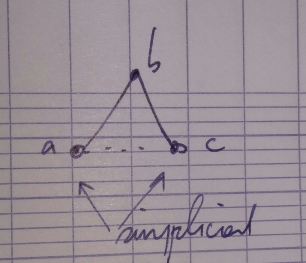 b
a c
simplicial